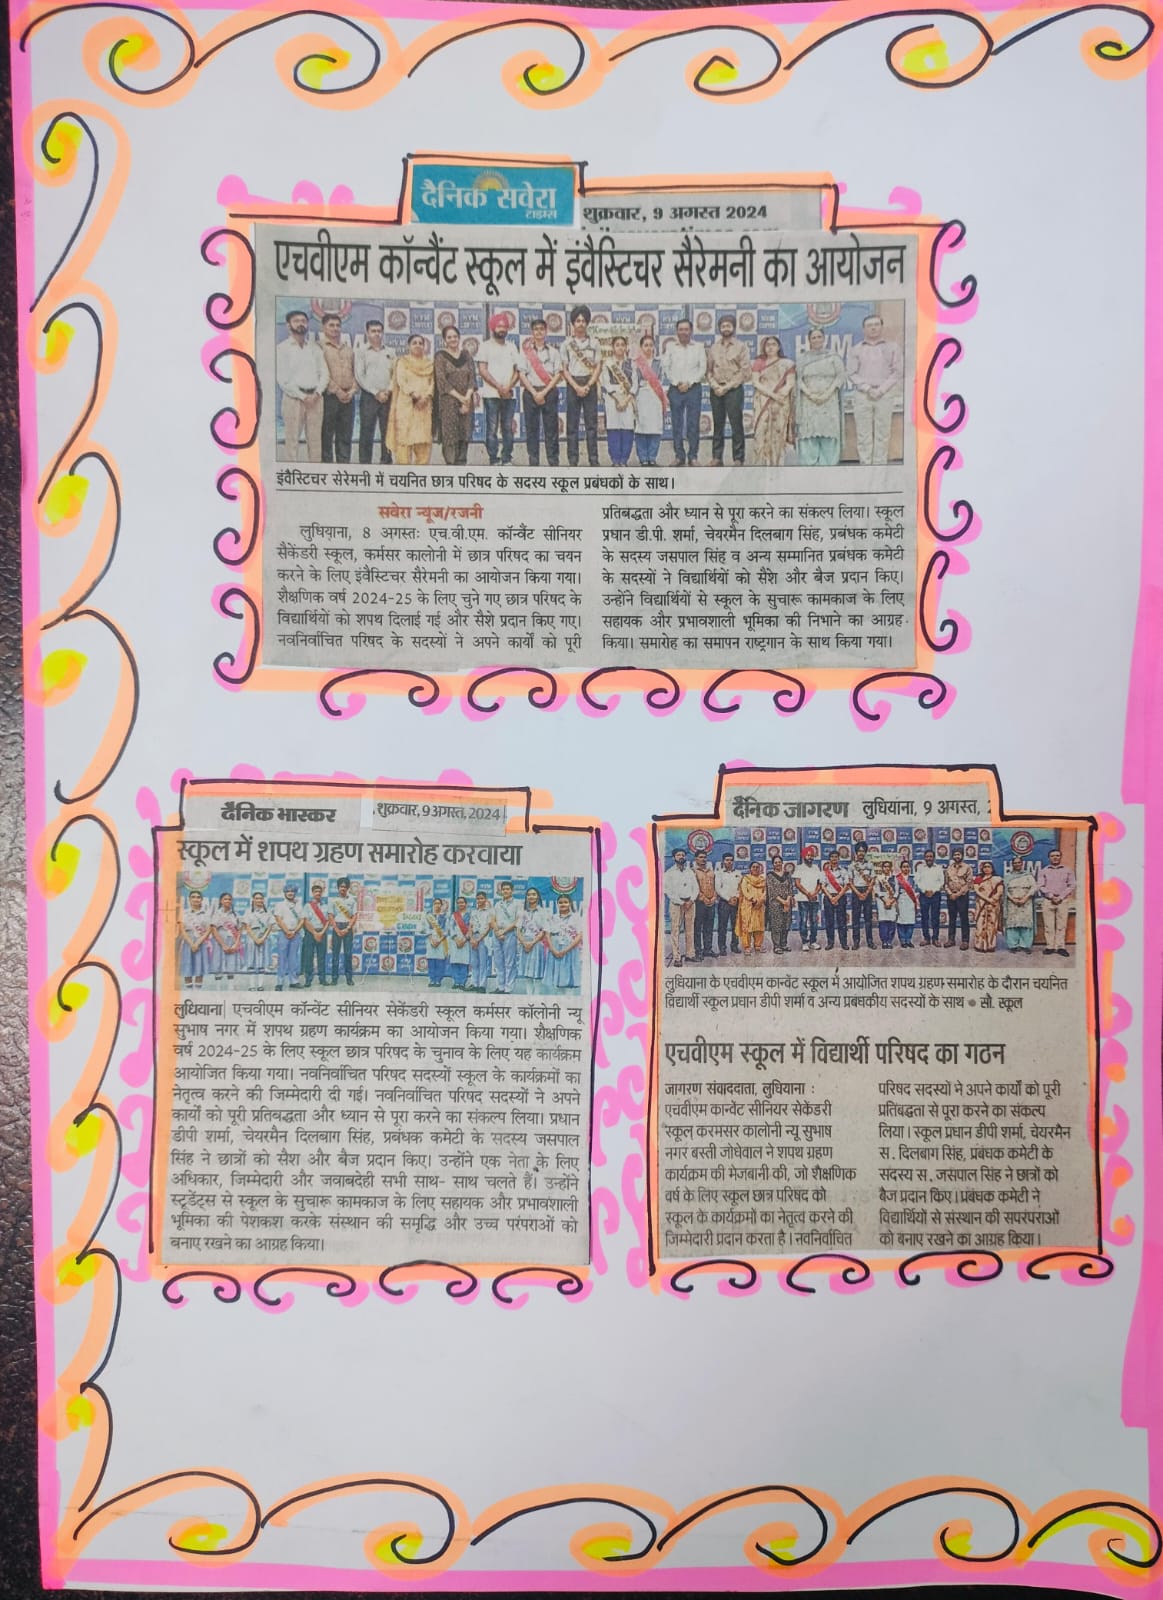 दैनिक सवेरा
टाइम्स
शुक्रवार, 9 अगस्त 2024
एचवीएम कॉन्वैंट स्कूल में इंवैस्टिचर सैरेमनी का आयोजन
इंवैस्टिचर सेरेमनी में चयनित छात्र परिषद के सदस्य स्कूल प्रबंधकों के साथ।
सवेरा न्यूज/रजनी
लुधियाना, 8 अगस्तः एच.वी.एम. कॉन्वैंट सीनियर
सैकेंडरी स्कूल, कर्मसर कालोनी में छात्र परिषद का चयन
करने के लिए इंवैस्टिचर सैरेमनी का आयोजन किया गया।
शैक्षणिक वर्ष 2024-25 के लिए चुने गए छात्र परिषद के
विद्यार्थियों को शपथ दिलाई गई और सैशे प्रदान किए गए।
नवनिर्वाचित परिषद के सदस्यों ने अपने कार्यों को पूरी
प्रतिबद्धता और ध्यान से पूरा करने का संकल्प लिया। स्कूल
प्रधान डी.पी. शर्मा, चेयरमैन दिलबाग सिंह, प्रबंधक कमेटी
के सदस्य जसपाल सिंह व अन्य सम्मानित प्रबंधक कमेटी
के सदस्यों ने विद्यार्थियों को सैशे और बैज प्रदान किए।
उन्होंने विद्यार्थियों से स्कूल के सुचारू कामकाज के लिए
सहायक और प्रभावशाली भूमिका की निभाने का आग्रह
किया। समारोह का समापन राष्ट्रगान के साथ किया गया।
दैनिक भास्कर
शुक्रवार, 9 अगस्त, 2024
स्कूल में शपथ ग्रहण समारोह करवाया
लुधियाना| एचवीएम कॉन्वेंट सीनियर सेकेंडरी स्कूल कर्मसर कॉलोनी न्यू
सुभाष नगर में शपथ ग्रहण कार्यक्रम का आयोजन किया गया। शैक्षणिक
वर्ष 2024-25 के लिए स्कूल छात्र परिषद के चुनाव के लिए यह कार्यक्रम
आयोजित किया गया। नवनिर्वाचित परिषद सदस्यों स्कूल के कार्यक्रमों का
नेतृत्व करने की जिम्मेदारी दी गई। नवनिर्वाचित परिषद सदस्यों ने अपने
कार्यों को पूरी प्रतिबद्धता और ध्यान से पूरा करने का संकल्प लिया। प्रधान
डीपी शर्मा, चेयरमैन दिलबाग सिंह, प्रबंधक कमेटी के सदस्य जसपाल
सिंह ने छात्रों को सैश और बैज प्रदान किए। उन्होंने एक नेता के लिए
अधिकार, जिम्मेदारी और जवाबदेही सभी साथ- साथ चलते हैं। उन्होंने
स्टूडेंट्स से स्कूल के सुचारू कामकाज के लिए सहायक और प्रभावशाली
भूमिका की पेशकश करके संस्थान की समृद्धि और उच्च परंपराओं को
बनाए रखने का आग्रह किया।
दैनिक जागरण लुधियाना, 9 अगस्त,
लुधियाना के एचवीएम कान्वेंट स्कूल में आयोजित शपथ ग्रहण समारोह के दौरान चयनित
विद्यार्थी स्कूल प्रधान डीपी शर्मा व अन्य प्रबंधकीय सदस्यों के साथ ● सौ. स्कूल
एचवीएम स्कूल में विद्यार्थी परिषद का गठन
जागरण संवाददाता, लुधियाना :
एचवीएम कान्वेंट सीनियर सेकेंडरी
स्कूल करमसर कालोनी न्यू सुभाष
नगर बस्ती जोधेवाल ने शपथ ग्रहण
कार्यक्रम की मेजबानी की, जो शैक्षणिक
वर्ष के लिए स्कूल छात्र परिषद को
स्कूल के कार्यक्रमों का नेतृत्व करने की
जिम्मेदारी प्रदान करता है। नवनिर्वाचित
परिषद सदस्यों ने अपने कार्यों को पूरी
प्रतिबद्धता से पूरा करने का संकल्प
लिया। स्कूल प्रधान डीपी शर्मा, चेयरमैन
स. दिलबाग सिंह, प्रबंधक कमेटी के
सदस्य स. जसपाल सिंह ने छात्रों को
बैज प्रदान किए। प्रबंधक कमेटी ने
विद्यार्थियों से संस्थान की सपरंपराओं
को बनाए रखने का आग्रह किया।